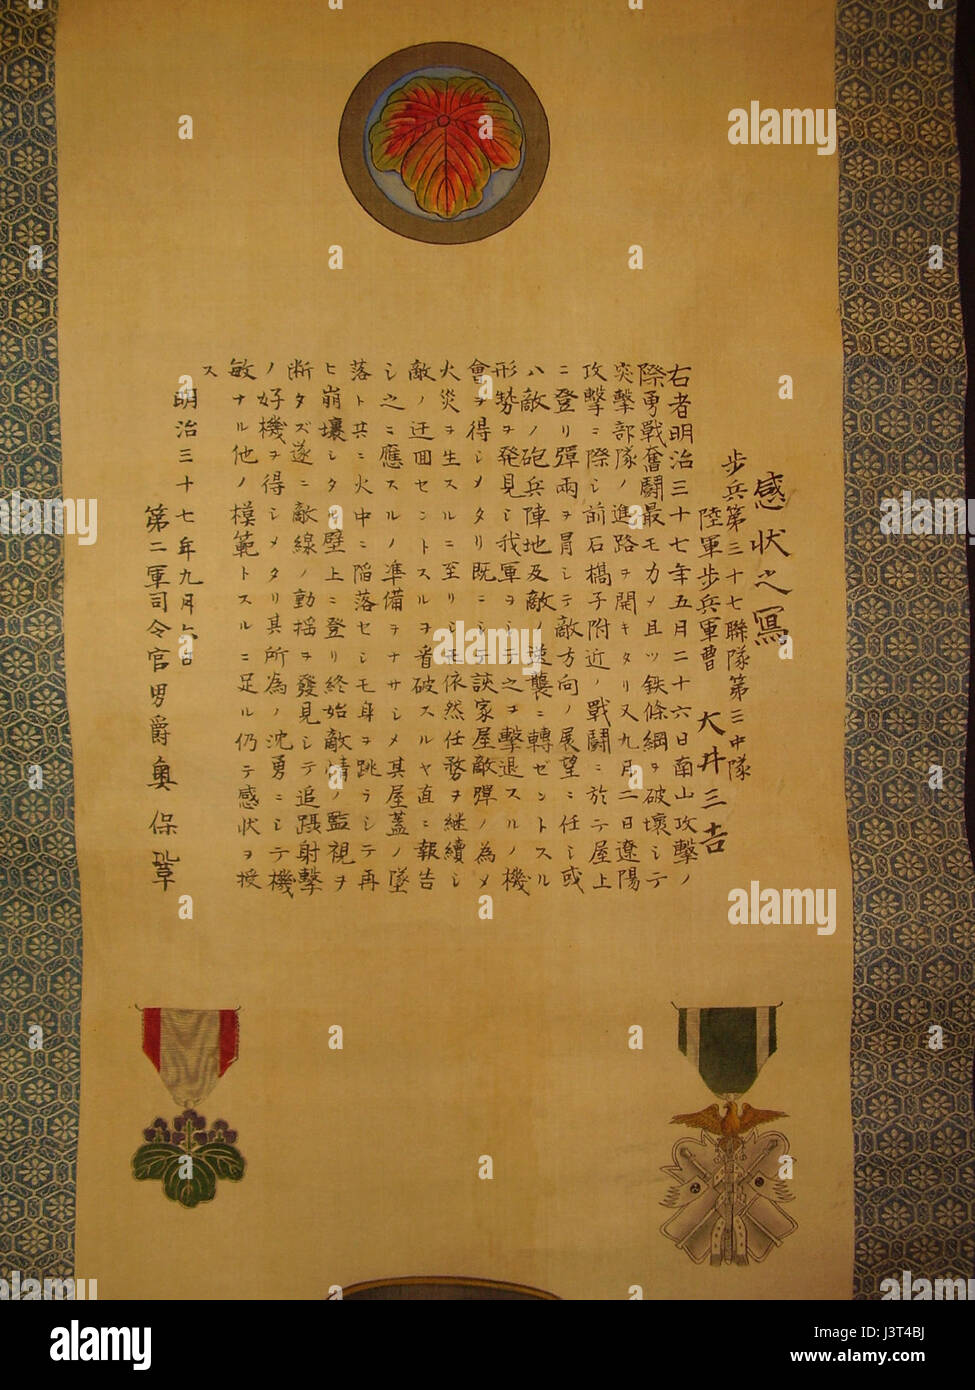 感状之寫
歩兵第三十七聯隊第三中隊
陸軍歩兵軍曹 大井三吉
右者明治三十七年五月二十六日南山攻撃ノ
際勇戰奮闘最モカメ且ツ鉄條綱ヲ破壊シテ
突撃部隊ノ進路ヲ開キタリ又九月二日遼陽
攻撃ニ際シ前石橋子附近ノ戰闘ニ於テ屋上
ニ登リ彈雨ヲ冒シテ敵方向ノ展望ニ任シ或
ハ敵ノ砲兵陣地及敵ノ逆襲ニ轉ゼントスル
形勢ヲ発見シ我軍ヲシテ之ヲ撃退スルノ機
會ヲ得シメタリ既ニシテ該家屋敵彈ノ為メ
火災ヲ生スルニ至リシモ依然任務ヲ継續シ
敵ノ迂回セントスルヲ看破スルヤ直ニ報告
シ之ニ應スルノ準備ヲナサシメ其屋蓋ノ墜
落ト共ニ火中ニ陥落セシモ身ヲ跳ラシテ再
ヒ崩壊シタル壁上ニ登リ終始敵情ノ監視ヲ
断タズ遂ニ敵線ノ動揺ヲ發見シテ追躡射撃
ノ好機ヲ得シメタリ其所為ノ沈勇ニシテ機
敏ナル他ノ模範トスルニ足ル仍テ感状ヲ授
ス
明治三十七年九月六日
第二軍司令官男爵奥保鞏
alamy
a
Image ID: J3T4BJ
www.alamy.com